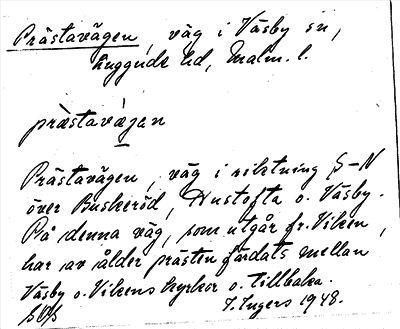 Prästavägen, väg i Väsby sn,
Luggude hd, Malm. l.
prästavägan
Prästavägen, väg i riktning S–N
över Buskeröd, Hustofta o. Väsby.
På denna väg, som utgår fr. Viken,
har av ålder prästen färdats mellan
Väsby o. Vikens kyrkor o. tillbaka.
I. Ingers 1948.